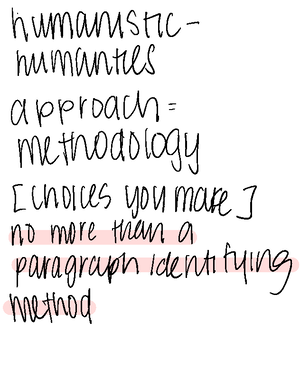 humanistic-
humanties
approach=
methodology
[choices you make]
no more than a
paragraph identifying
method